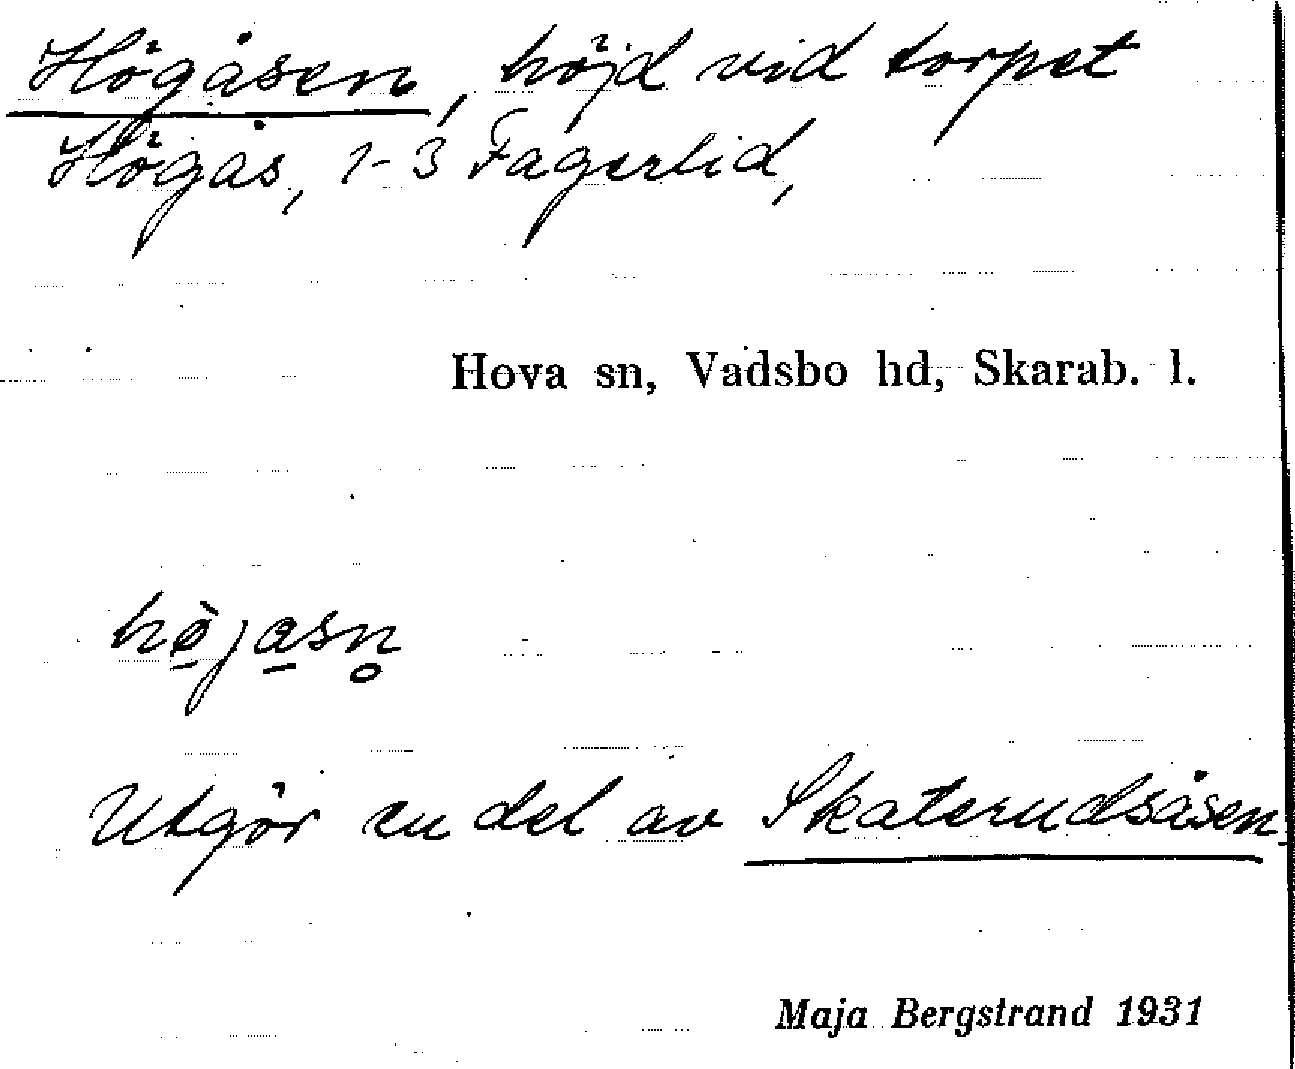 Högåsen, höjd vid torpet
Högås, 1-3 Fagerlid,
Hova sn, Vadsbo hd, Skarab. l.
hø̠̀ja̠sn̥
Utgör en del av Skaterudsåsen.
Maja Bergstrand 1931